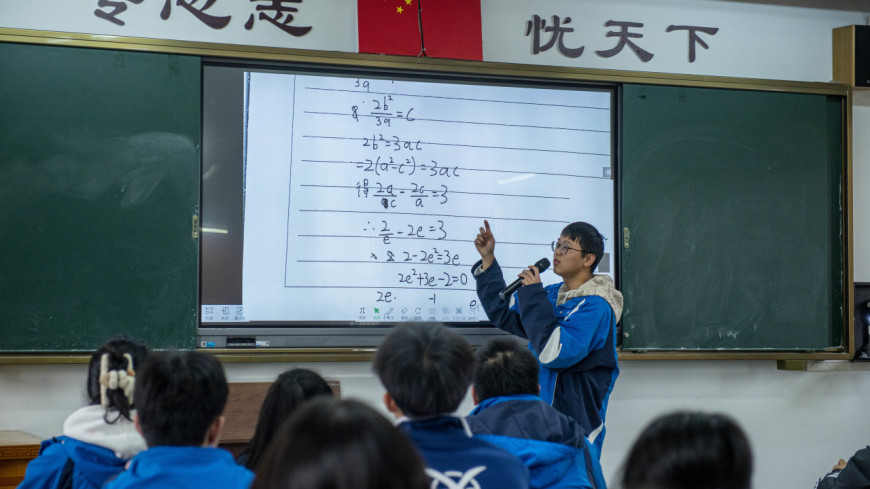 忧天下
3a
2b²/3a = c
2b²=3ac
=2(a²-c²)=3ac
得 2a/c - 2c/a =3
∴ 2/e - 2e=3
2-2e²=3e
2e²+3e-2=0
2e -1